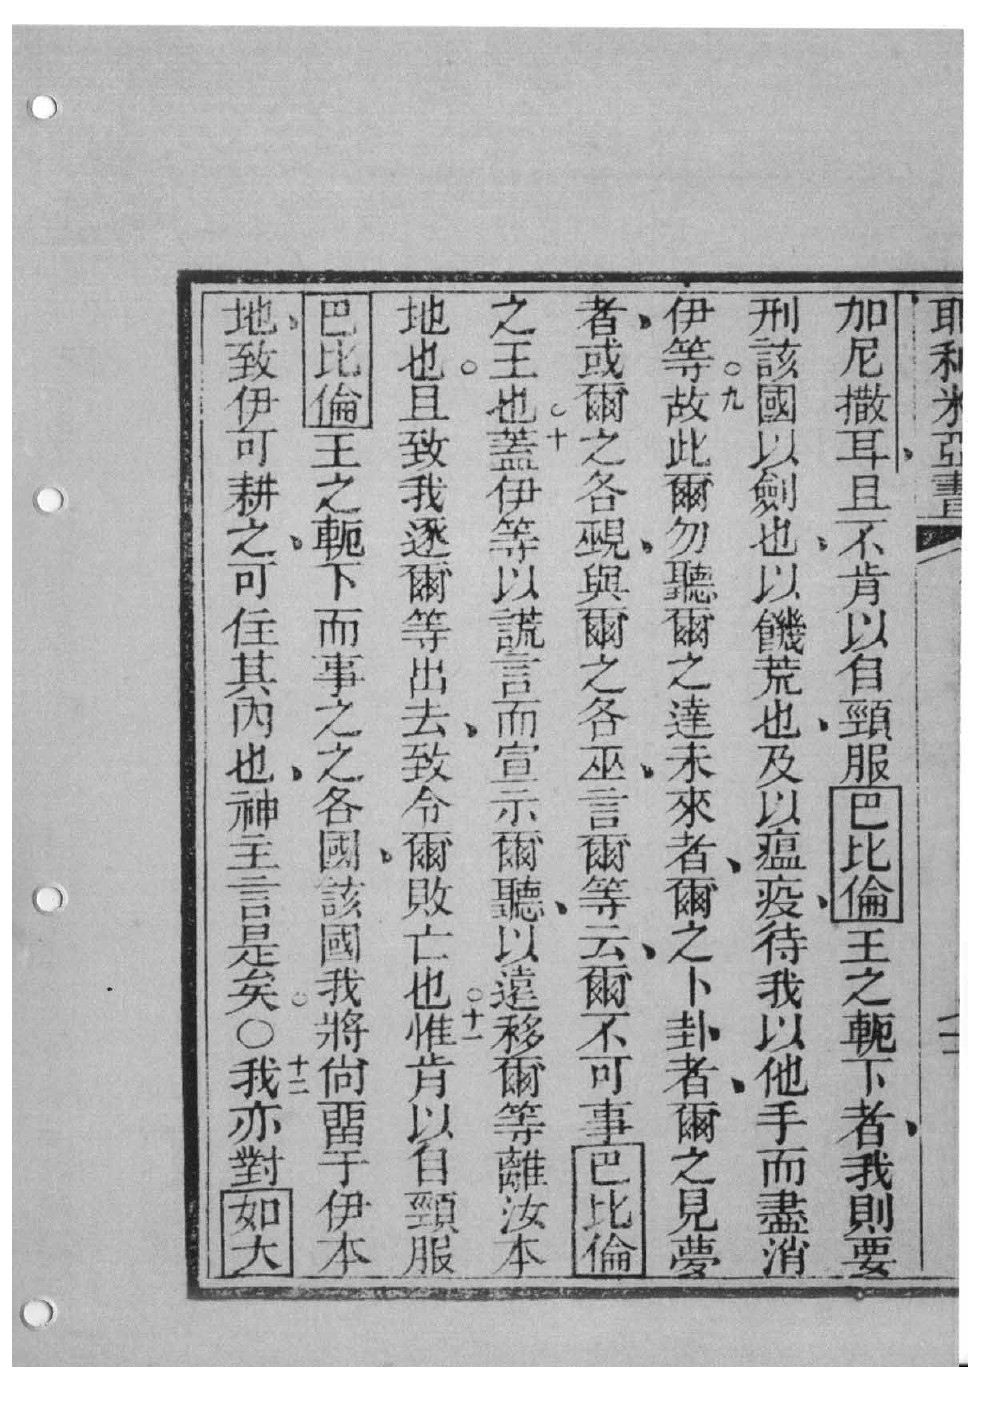 耶利米亞書
加尼撒耳且不肯以自頸服巴比倫王之軛下者、我則要
刑該國以劍也、以饑荒也、及以瘟疫、待我以他手而盡消
伊等○九故此爾勿聽爾之達未來者、爾之卜卦者、爾之見夢
者、或爾之各覡、與爾之各巫、言爾等云、爾不可事巴比倫
之王也○十蓋伊等以謊言而宣示爾聽、以遠移爾等離汝本
地也○且致我逐爾等出去、致令爾敗亡也○十一惟肯以自頸服
巴比倫王之軛下而事之之各國、該國我將尙畱于伊本
地、致伊可耕之、可住其內也、神主言是矣○○十二我亦對如大